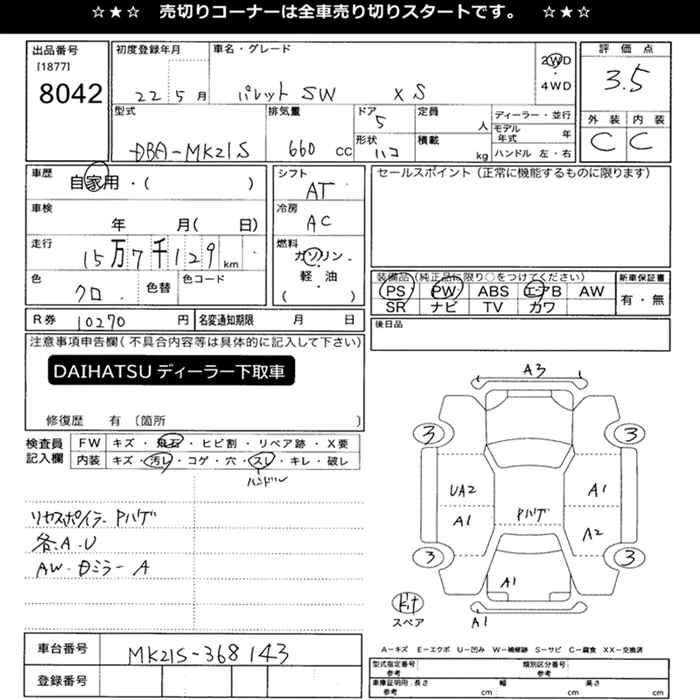 ☆★☆ 売切りコーナーは全車売り切りスタートです。 ☆★☆
出品番号
[1877]
8042
初度登録年月
22 5月
車名・グレード
パレットSW XS
2WD
4WD
評価点
3.5
外装 内装
C C
型式
DBA-MK21S
排気量
660 cc
ドア
5
形状
ハコ
定員
人
積載
kg
ディーラー・並行
モデル年式 年
ハンドル 左・右
車歴
自家用・( )
車検
年 月( 日)
走行
15万7千129 km
色
クロ
色替
色コード
シフト
AT
冷房
AC
燃料
ガソリン
軽・油
( )
セールスポイント(正常に機能するものに限ります)
装備品(純正品に限り○をつけてください)
PS PW ABS エアB AW
SR ナビ TV カワ
新車保証書
有・無
後日品
R券 10270 円
名変通知期限 月 日
注意事項申告欄(不具合内容等は具体的に記入して下さい)
DAIHATSU ディーラー下取車
修復歴 有 (箇所 )
検査員記入欄
FW キズ・飛石・ヒビ割・リペア跡・X要
内装 キズ・汚レ・コゲ・穴・スレ・キレ・破レ
ハンドル
リヤスポイラーPハゲ
各A・U
AW・Dミラー A
A3
3 3
UA2 A1
A1 Pハゲ A2
3 3
A1
Kit
スペア
A1
車台番号
MK21S-368143
登録番号
A－キズ E－エクボ U－凹み W－補修跡 S－サビ C－腐食 XX－交換済
型式指定番号 参考
類別区分番号 参考
車庫証明用 参考
長さ cm
幅 cm
高さ cm